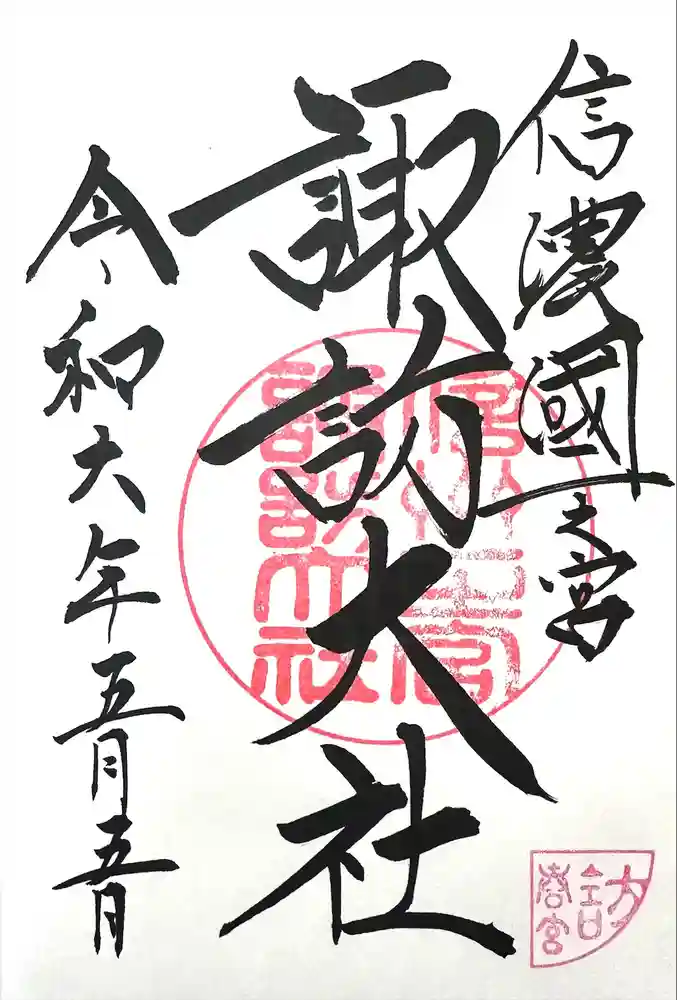 信濃國一之宮
諏訪大社
令和六年五月五日
諏訪大社
訪
春宮